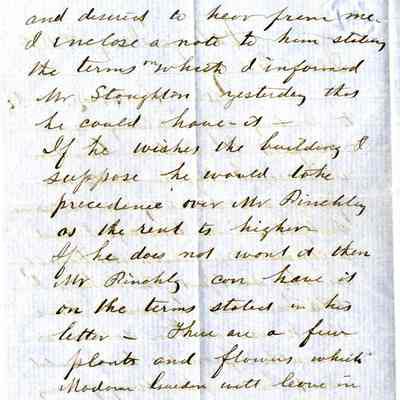 and desired to hear from me.
I inclose a note to him stating
the terms on which I informed
Mr Stoughton yesterday that
he could have it —
If he wishes the building I
suppose he would take
precedence over Mr Pinchly
as the rent is higher
If he does not want it then
Mr Pinchly can have it
on the terms stated in his
letter — There are a few
plants and flowers which
Madam will leave in